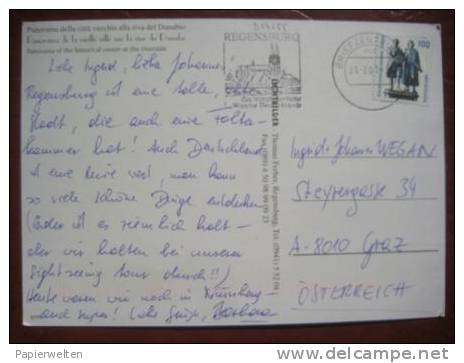 Panorama della città vecchia alla riva del Danubio
Panorama de la vieille ville sur la rive du Danube
Panorama of the historical center at the riverside
REGENSBURG
100
Liebe Ingrid, lieber Johannes
Regensburg ist eine tolle, alte
Stadt, die auch eine Folter-
kammer hat! Auch Deutschland
ist eine Reise wert, man kann
so viele schöne Dinge entdecken
(leider ist es ziemlich kalt -
aber wir halten bei unserer
Sightseeing tour durch!!)
Heute waren wir noch in Nürnberg -
auch super! Liebe Grüße, Barbara
LICHTBILDER Thomas Ferber, Regensburg, Tel. (0941) 5 52 08
Ingrid + Johann WEGAN
Steyrergasse 34
A-8010 Graz
ÖSTERREICH
Papierwelten
http://www.delcampe.net